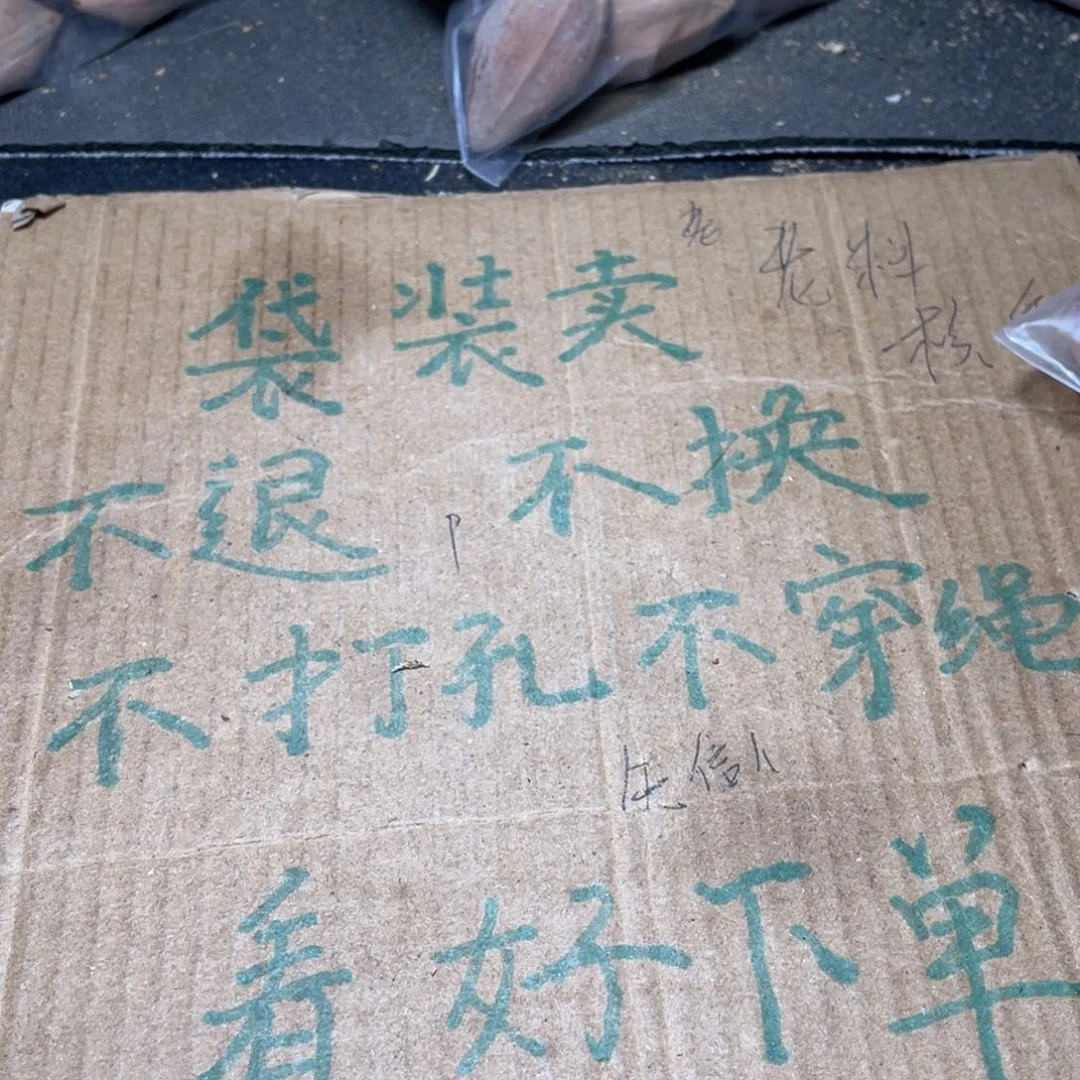 袋装卖
老料
不退 不换
不打孔 不穿绳
失信人
看好下单